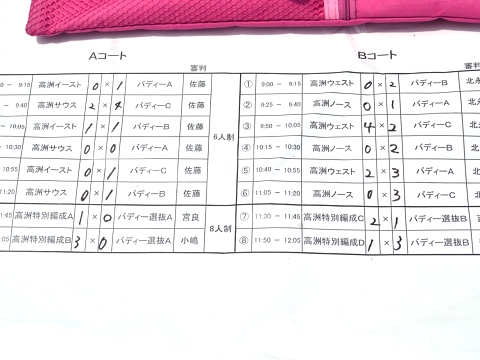 Aコート Bコート
審判 審判
0 － 9:15 高洲イースト 0 × 1 バディーA 佐藤 ① 9:00 － 9:15 高洲ウェスト 0 × 2 バディーB 北
－ 9:40 高洲サウス 2 × 4 バディーC 佐藤 ② 9:25 － 9:40 高洲ノース 0 × 1 バディーA 北永
－ 10:05 高洲イースト 1 × 1 バディーB 佐藤 6人制 ③ 9:50 － 10:05 高洲ウェスト 4 × 2 バディーC 北永
－ 10:30 高洲サウス 0 × 0 バディーA 佐藤 ④ 10:15 － 10:30 高洲ノース 0 × 2 バディーB 北永
10:55 高洲イースト 0 × 1 バディーC 佐藤 ⑤ 10:40 － 10:55 高洲ウェスト 2 × 3 バディーA 北永
11:20 高洲サウス 0 × 1 バディーB 佐藤 ⑥ 11:05 － 11:20 高洲ノース 0 × 3 バディーC 北
1:45 高洲特別編成A 1 × 0 バディー選抜A 宮良 8人制 ⑦ 11:30 － 11:45 高洲特別編成C 2 × 1 バディー選抜B
:05 高洲特別編成B 3 × 0 バディー選抜A 小嶋 ⑧ 11:50 － 12:05 高洲特別編成D 1 × 3 バディー選抜B